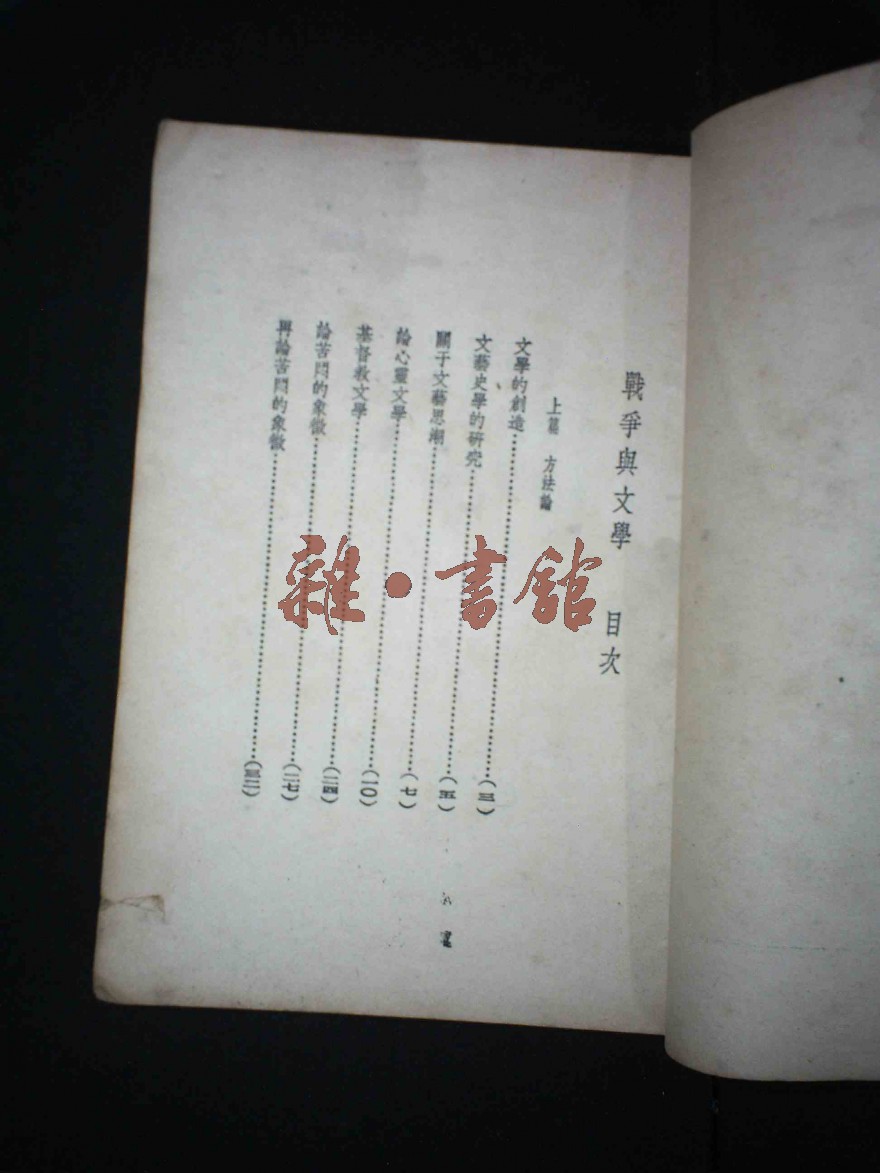 戰爭與文學 目次
上篇 方法論
文學的創造……(三)
文藝史學的研究……(五)
關于文藝思潮……(七)
論心靈文學……(一〇)
基督教文學……(二四)
論苦悶的象徵……(二七)
再論苦悶的象徵……(三二)
雜·書館